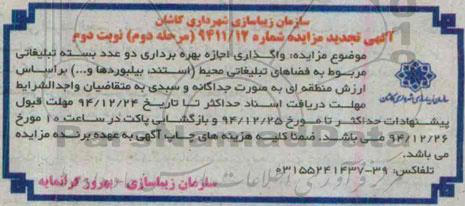 سازمان زیباسازی شهرداری کاشان
آگهی تجدید مزایده شماره ۹۴۱۱/۱۲ (مرحله دوم) نوبت دوم
موضوع مزایده: واگذاری اجازه بهره برداری دو عدد بسته تبلیغاتی
مربوط به فضاهای تبلیغاتی محیط (استند، بیلبوردها و...) براساس
ارزش منطقه ای به صورت جداگانه و سبدی به متقاضیان واجدالشرایط
مهلت دریافت اسناد حداکثر تا تاریخ ۹۴/۱۲/۲۴ مهلت قبول
پیشنهادات حداکثر تا مورخ ۹۴/۱۲/۲۵ و بازگشایی پاکت در ساعت ۱۰ مورخ
۹۴/۱۲/۲۶ می باشد. ضمنا کلیه هزینه های چاپ آگهی به عهده برنده مزایده
می باشد.
تلفاکس: ۳۹-۰۳۱۵۵۲۴۱۴۳۷
سازمان زیباسازی - بهروز گرانمایه